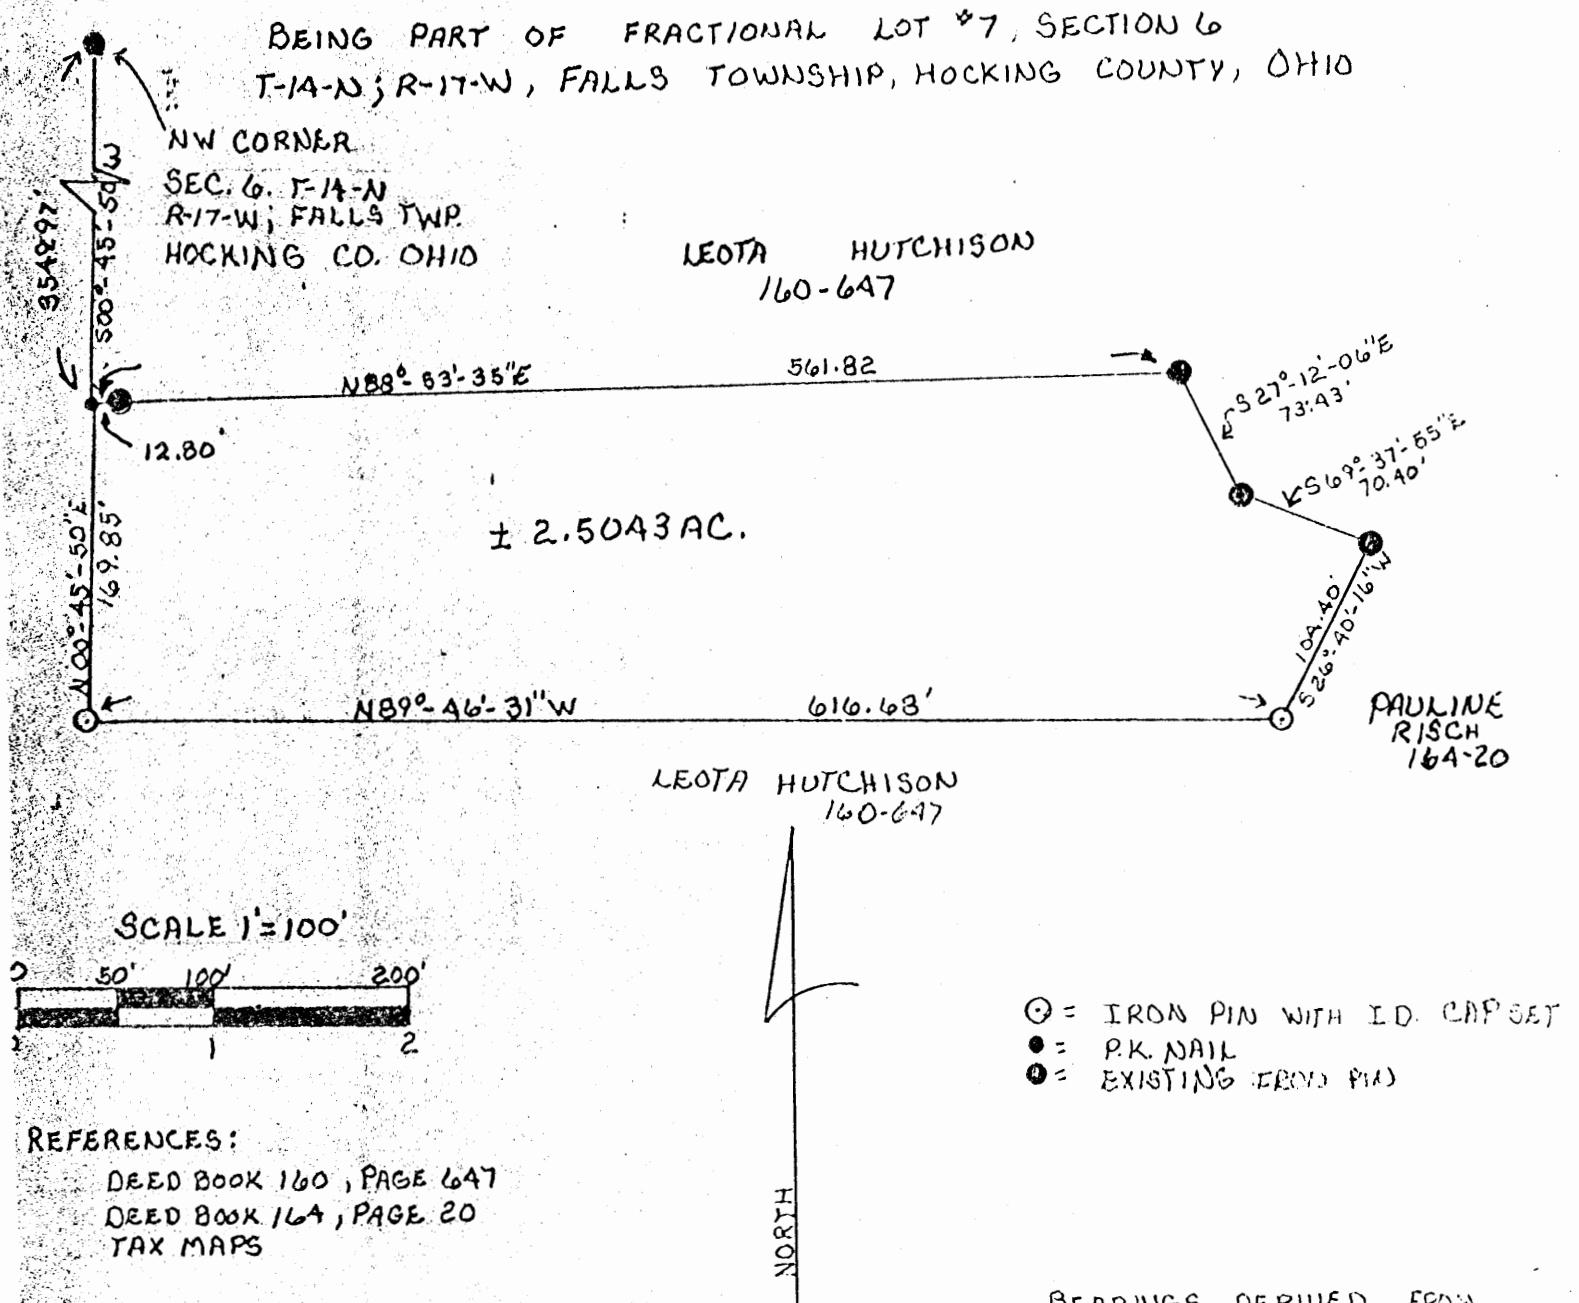 BEING PART OF FRACTIONAL LOT #7, SECTION 6
T-14-N; R-17-W, FALLS TOWNSHIP, HOCKING COUNTY, OHIO
NW CORNER
SEC. 6. T-14-N
R-17-W; FALLS TWP.
HOCKING CO. OHIO
3548.97'
S00°-45'-50"W
LEOTA HUTCHISON
160-647
N88°-53'-35"E
561.82
S27°-12'-06"E
73.43'
S69°-37'-55"E
70.40'
12.80'
± 2.5043 AC.
N00°-45'-50"E
169.85'
104.40'
S26°-40'-16"W
N89°-46'-31"W
616.63'
PAULINE
RISCH
164-20
LEOTA HUTCHISON
160-647
SCALE 1"=100'
0 50' 100' 200'
1 2
NORTH
= IRON PIN WITH I.D. CAP SET
= P.K. NAIL
= EXISTING IRON PIN
REFERENCES:
DEED BOOK 160, PAGE 647
DEED BOOK 164, PAGE 20
TAX MAPS
BEARINGS DERIVED FROM